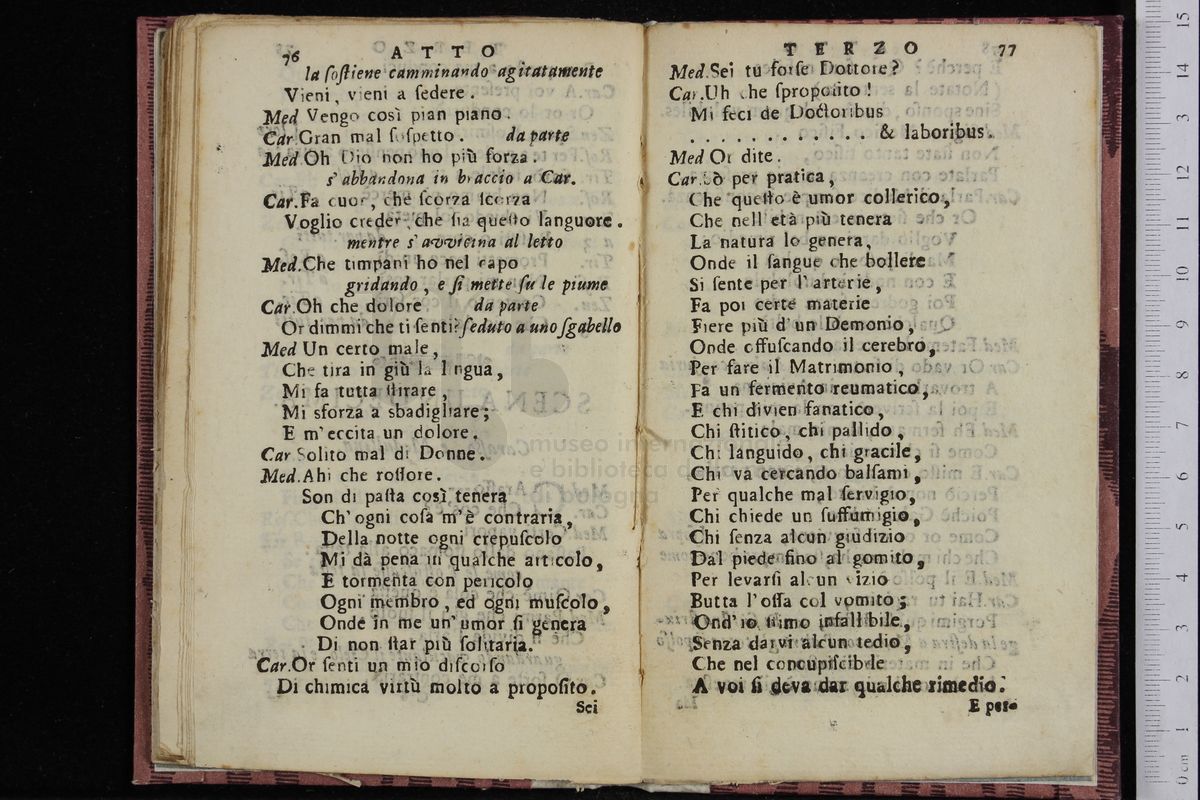 76 ATTO
la ſoſtiene camminando agitatamente
Vieni, vieni a ſedere.
Med Vengo così pian piano.
Car.Gran mal ſoſpetto. da parte
Med Oh Dio non ho più forza.
s'abbandona in braccio a Car.
Car.Fa cuor, che ſcorza ſcorza
Voglio creder, che ſia queſto languore.
mentre s'avvicina al letto
Med.Che timpani ho nel capo
gridando, e ſi mette ſu le piume
Car.Oh che dolore da parte
Or dimmi che ti ſenti? ſeduto a uno ſgabello
Med Un certo male,
Che tira in giù la lingua,
Mi fa tutta ſtirare,
Mi sforza a sbadigliare;
E m'eccita un dolore.
Car Solito mal di Donne.
Med.Ahi che roſſore.
Son di paſta così tenera
Ch'ogni coſa m'è contraria,
Della notte ogni crepuſcolo
Mi dà pena in qualche articolo,
E tormenta con pericolo
Ogni membro, ed ogni muſcolo,
Onde in me un'umor ſi genera
Di non ſtar più ſolitaria.
Car.Or ſenti un mio diſcorſo
Di chimica virtù molto a propoſito.
Sei
TERZO 77
Med.Sei tu forſe Dottore?
Car.Uh che ſpropoſito!
Mi feci de Doctoribus
. . . . . . . . . . . & laboribus.
Med Or dite.
Car.Sò per pratica,
Che queſto è umor collerico,
Che nell'età più tenera
La natura lo genera,
Onde il ſangue che bollere
Si ſente per l'arterie,
Fa poi certe materie
Fiere più d'un Demonio,
Onde offuſcando il cerebro,
Per fare il Matrimonio,
Fa un fermento reumatico,
E chi divien fanatico,
Chi ſtitico, chi pallido,
Chi languido, chi gracile,
Chi va cercando balſami,
Per qualche mal ſervigio,
Chi chiede un ſuffumigio,
Chi ſenza alcun giudizio
Dal piede fino al gomito,
Per levarſi alcun vizio
Butta l'oſſa col vomito;
Ond'io ſtimo infallibile,
Senza darvi alcun tedio,
Che nel concupiſcibile
A voi ſi deva dar qualche rimedio.
E per-
museo internazionale
e biblioteca della musica
di bologna
0 cm 1 2 3 4 5 6 7 8 9 10 11 12 13 14 15